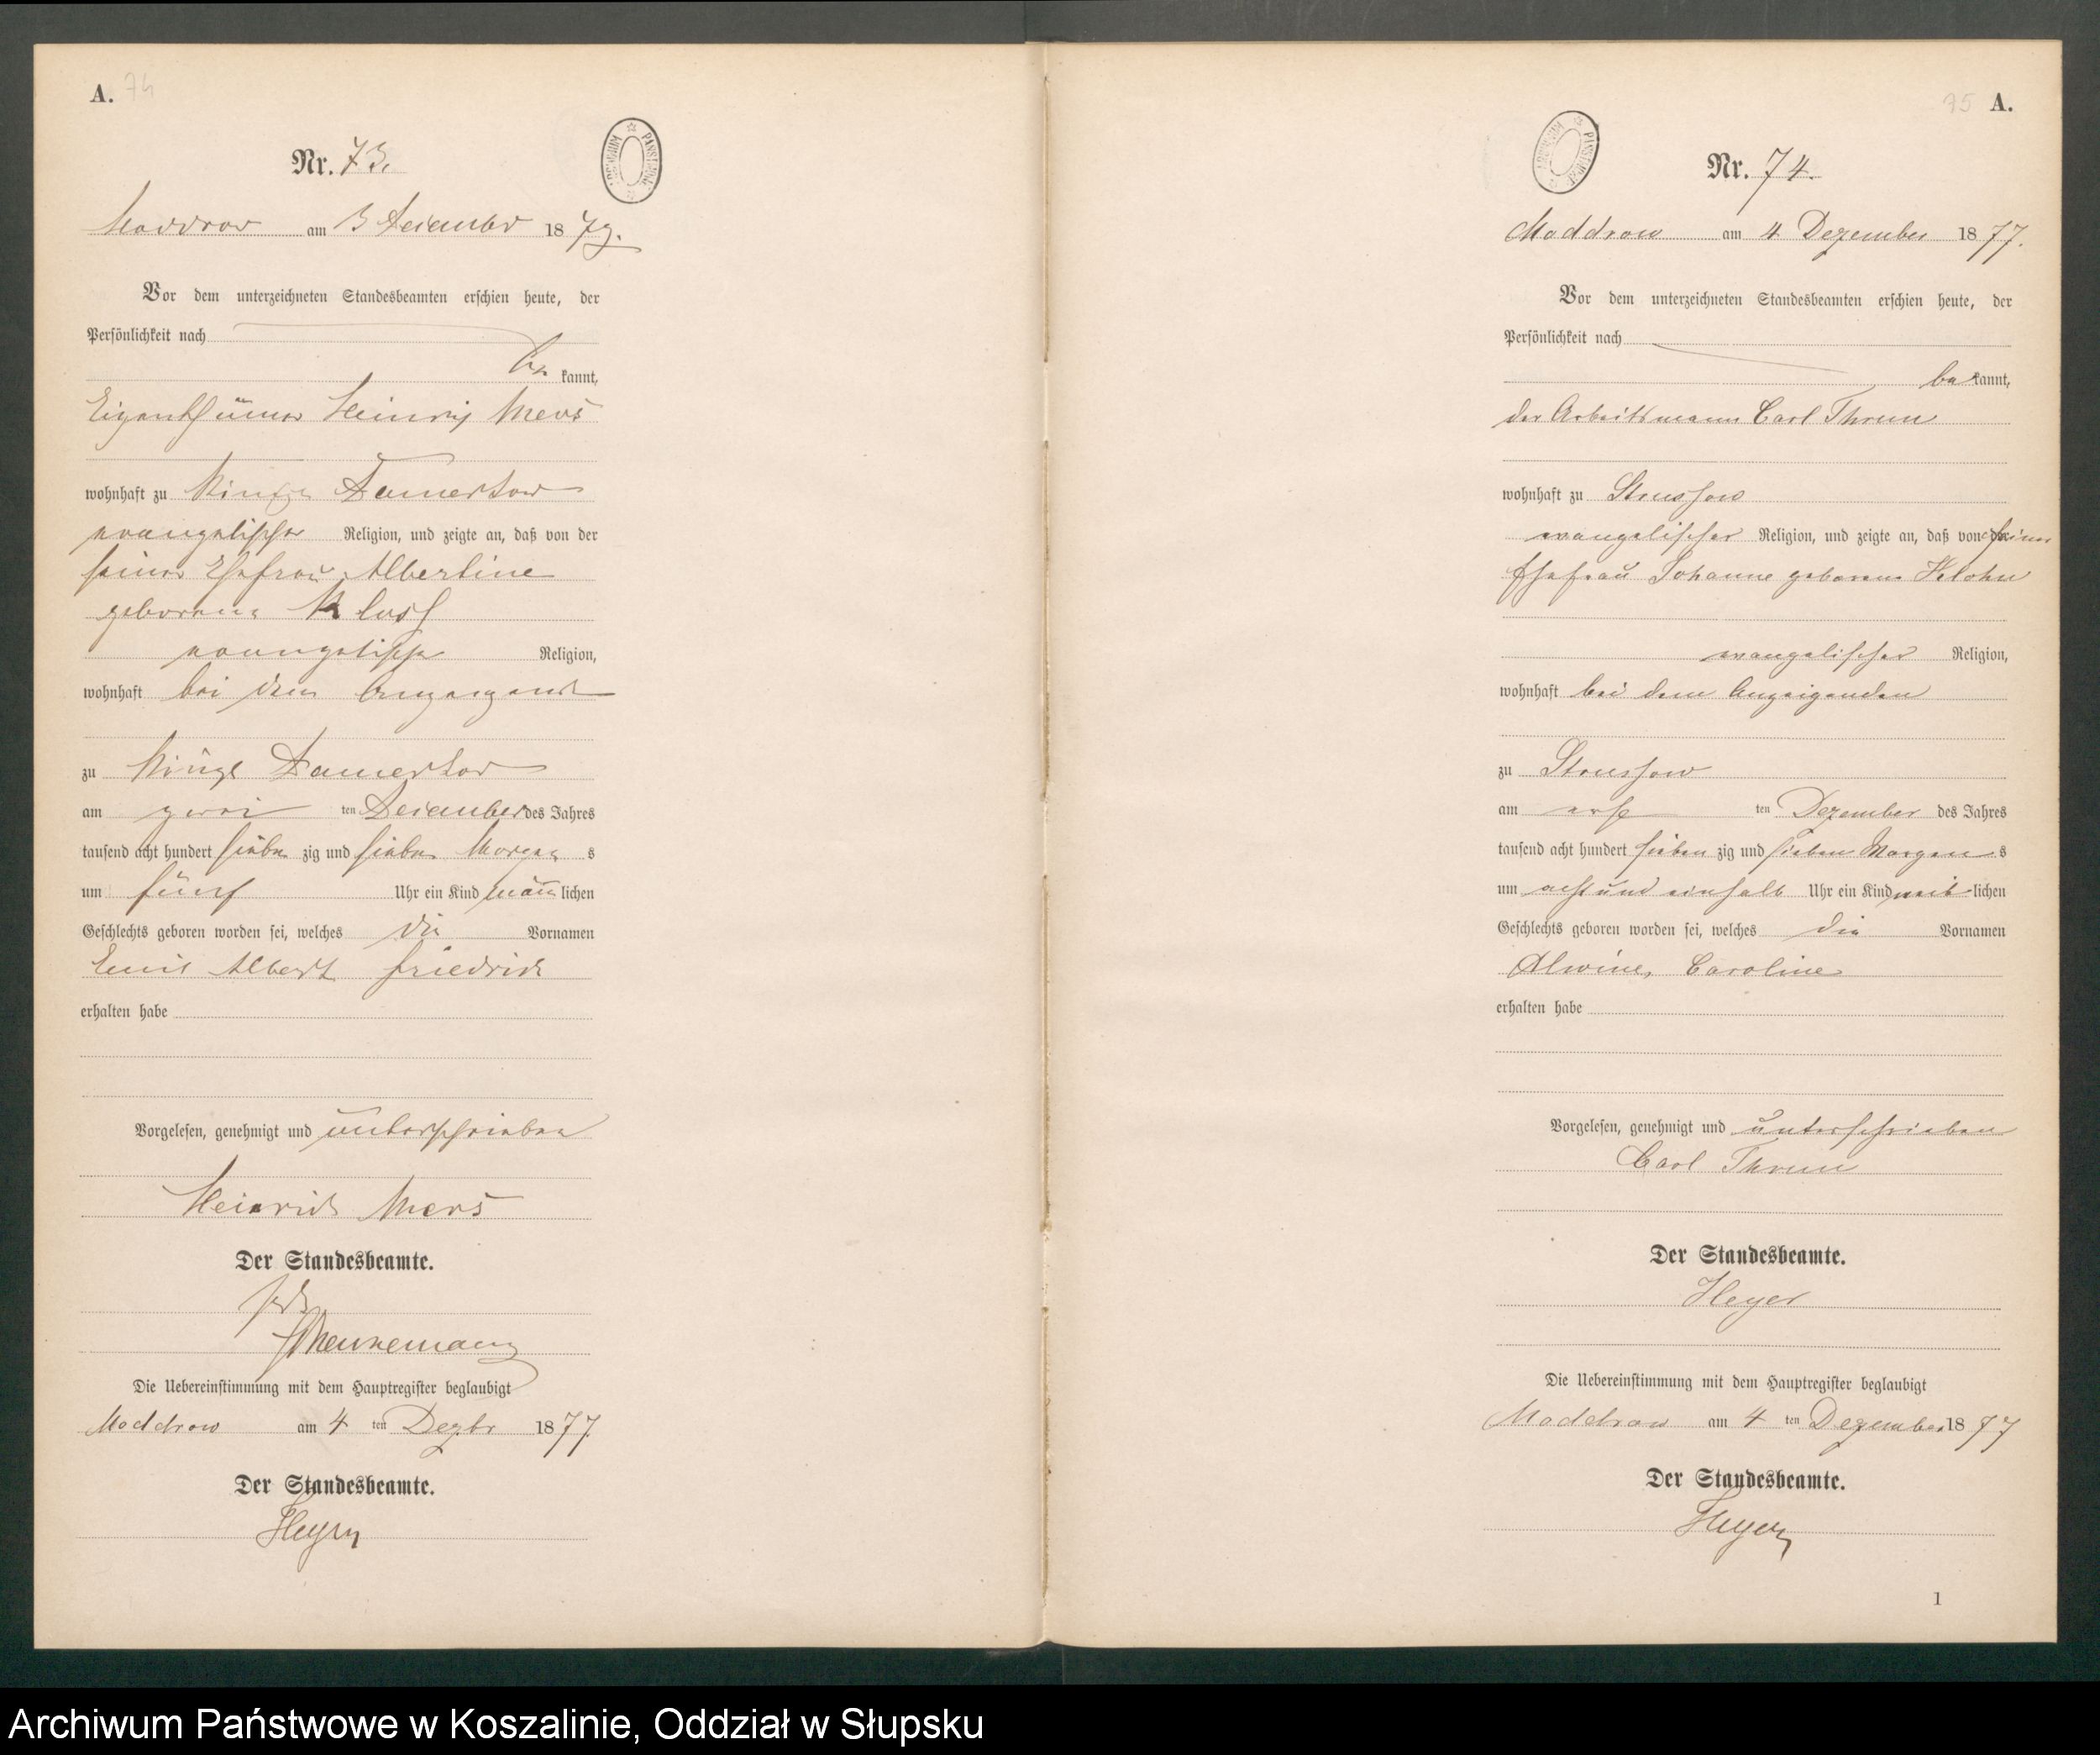 A. 74
Nr. 73.
ARCHIWUM PAŃSTWOWE
Moddrow am 3 Dezember 1877.
Vor dem unterzeichneten Standesbeamten erschien heute, der
Persönlichkeit nach
be kannt,
Eigenthümer Heinrich Mews
wohnhaft zu Damerkow
evangelischer Religion, und zeigte an, daß von der
seiner Ehefrau Albertine
geborene
evangelischer Religion,
wohnhaft bei dem Anzeigenden
zu Damerkow
am zwei ten Dezember des Jahres
tausend acht hundert sieben zig und sieben Morgen s
um fünf Uhr ein Kind männ lichen
Geschlechts geboren worden sei, welches die Vornamen
Emil Albert Friedrich
erhalten habe
Vorgelesen, genehmigt und unterschrieben
Heinrich Mews
Der Standesbeamte.
Die Uebereinstimmung mit dem Hauptregister beglaubigt
Moddrow am 4 ten Dezbr 1877.
Der Standesbeamte.
Heyer
75 A.
Nr. 74.
ARCHIWUM PAŃSTWOWE
Moddrow am 4 Dezember 1877.
Vor dem unterzeichneten Standesbeamten erschien heute, der
Persönlichkeit nach
be kannt,
der Arbeitsmann Carl Thrun
wohnhaft zu Strussow
evangelischer Religion, und zeigte an, daß von der seiner
Ehefrau Johanne geborene
evangelischer Religion,
wohnhaft bei dem Anzeigenden
zu Strussow
am ers ten Dezember des Jahres
tausend acht hundert sieben zig und sieben Morgen s
um acht und einhalb Uhr ein Kind weib lichen
Geschlechts geboren worden sei, welches die Vornamen
Alwine, Caroline
erhalten habe
Vorgelesen, genehmigt und unterschrieben
Carl Thrun
Der Standesbeamte.
Heyer
Die Uebereinstimmung mit dem Hauptregister beglaubigt
Moddrow am 4 ten Dezember 1877
Der Standesbeamte.
Heyer
1
Archiwum Państwowe w Koszalinie, Oddział w Słupsku